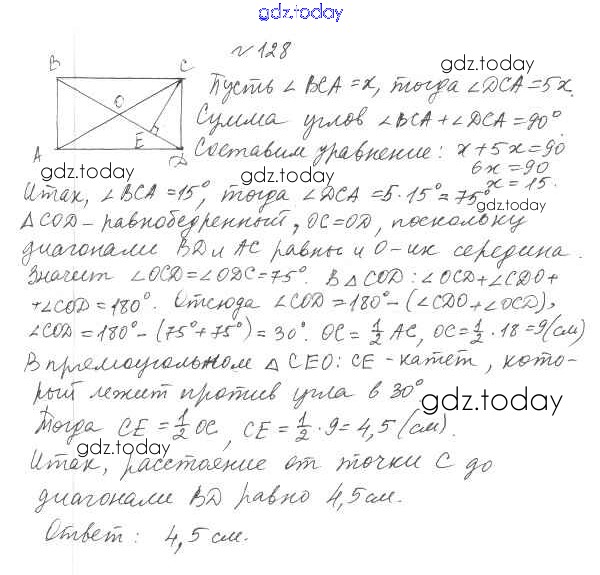 gdz.today
№ 128
B C
gdz.today
Пусть ∠BCA = x, тогда ∠DCA = 5x.
O
Сумма углов ∠BCA + ∠DCA = 90°
E
gdz.today
A D
Составим уравнение: x + 5x = 90
gdz.today
6x = 90
x = 15.
Итак, ∠BCA = 15°, тогда ∠DCA = 5·15° = 75°
gdz.today
△COD – равнобедренный, OC = OD, поскольку
диагонали BD и AC равны и O – их середина.
Значит ∠OCD = ∠ODC = 75°. В △COD: ∠OCD + ∠CDO +
+ ∠COD = 180°. Отсюда ∠COD = 180° – (∠CDO + ∠OCD),
∠COD = 180° – (75° + 75°) = 30°. OC = 1/2 AC, OC = 1/2 · 18 = 9 (см)
В прямоугольном △CEO: CE – катет, кото-
рый лежит против угла в 30°
gdz.today
Тогда CE = 1/2 OC, CE = 1/2 · 9 = 4,5 (см).
gdz.today
Итак, расстояние от точки C до
диагонали BD равно 4,5 см.
Ответ: 4,5 см.
gdz.today